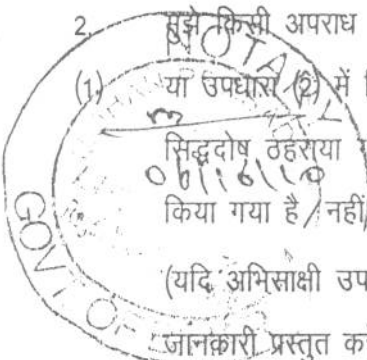 2. मुझे किसी अपराध
(1) या उपधारा (2) में
सिद्धदोष ठहराया
किया गया है / नहीं
(यदि अभिसाक्षी उप
जानकारी प्रस्तुत क
NOTARY
GOVT OF